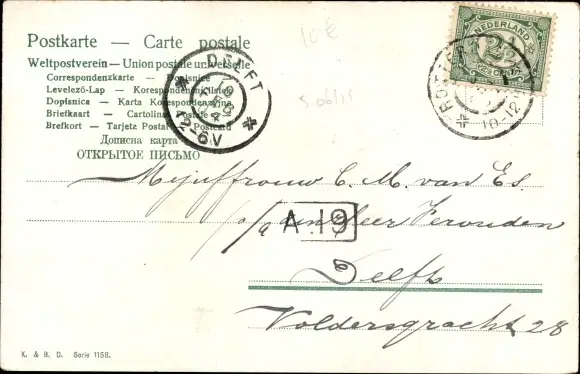 Postkarte — Carte postale
Weltpostverein — Union postale universelle
Correspondenzkarte — Dopisnice
Levelező-Lap — Korespondenzlisten
Dopisnica — Karta Korespondencyjna
Briefkaart — Cartolina postale
Brefkort — Tarjeta Postal — Postcard
Дописна карта
ОТКРЫТОЕ ПИСЬМО
10€
DELFT
12-6V
NEDERLAND
2½
CENT
10-12
Mejuffrouw C. M. van Es.
A.19
Delft
Voldersgracht 28
K. & B. D. Serie 1158.